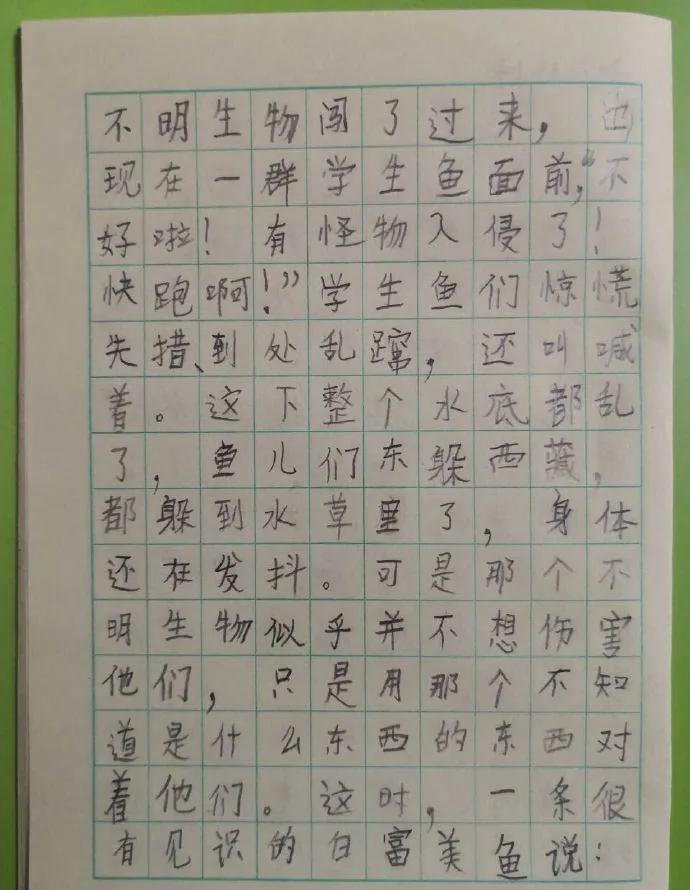 不明生物闯了过来，出
现在一群学生鱼面前，“不
好啦！有怪物入侵了！
快跑啊！”学生鱼们惊慌
失措、到处乱蹿，还叫喊
着。这下整个水底都乱
了，鱼儿们东躲西藏，
都躲到水草里了，身体
还在发抖。可是那个不
明生物似乎并不想伤害
他们，只是用那个不知
道是什么东西的东西对
着他们。这时，一条很
有见识的白富美鱼说：